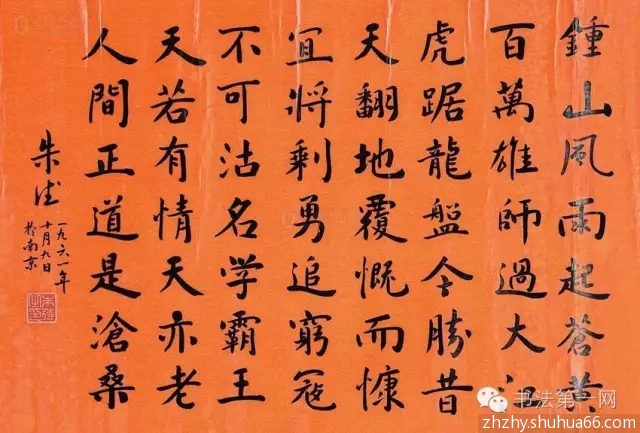 鍾山風雨起蒼黄
百萬雄師過大江
虎踞龍盤今勝昔
天翻地覆慨而慷
宜將剩勇追窮寇
不可沽名学霸王
天若有情天亦老
人間正道是滄桑
朱德
一九六一年
十月九日
於南京
书法第一网
zhzhy.shuhua66.com